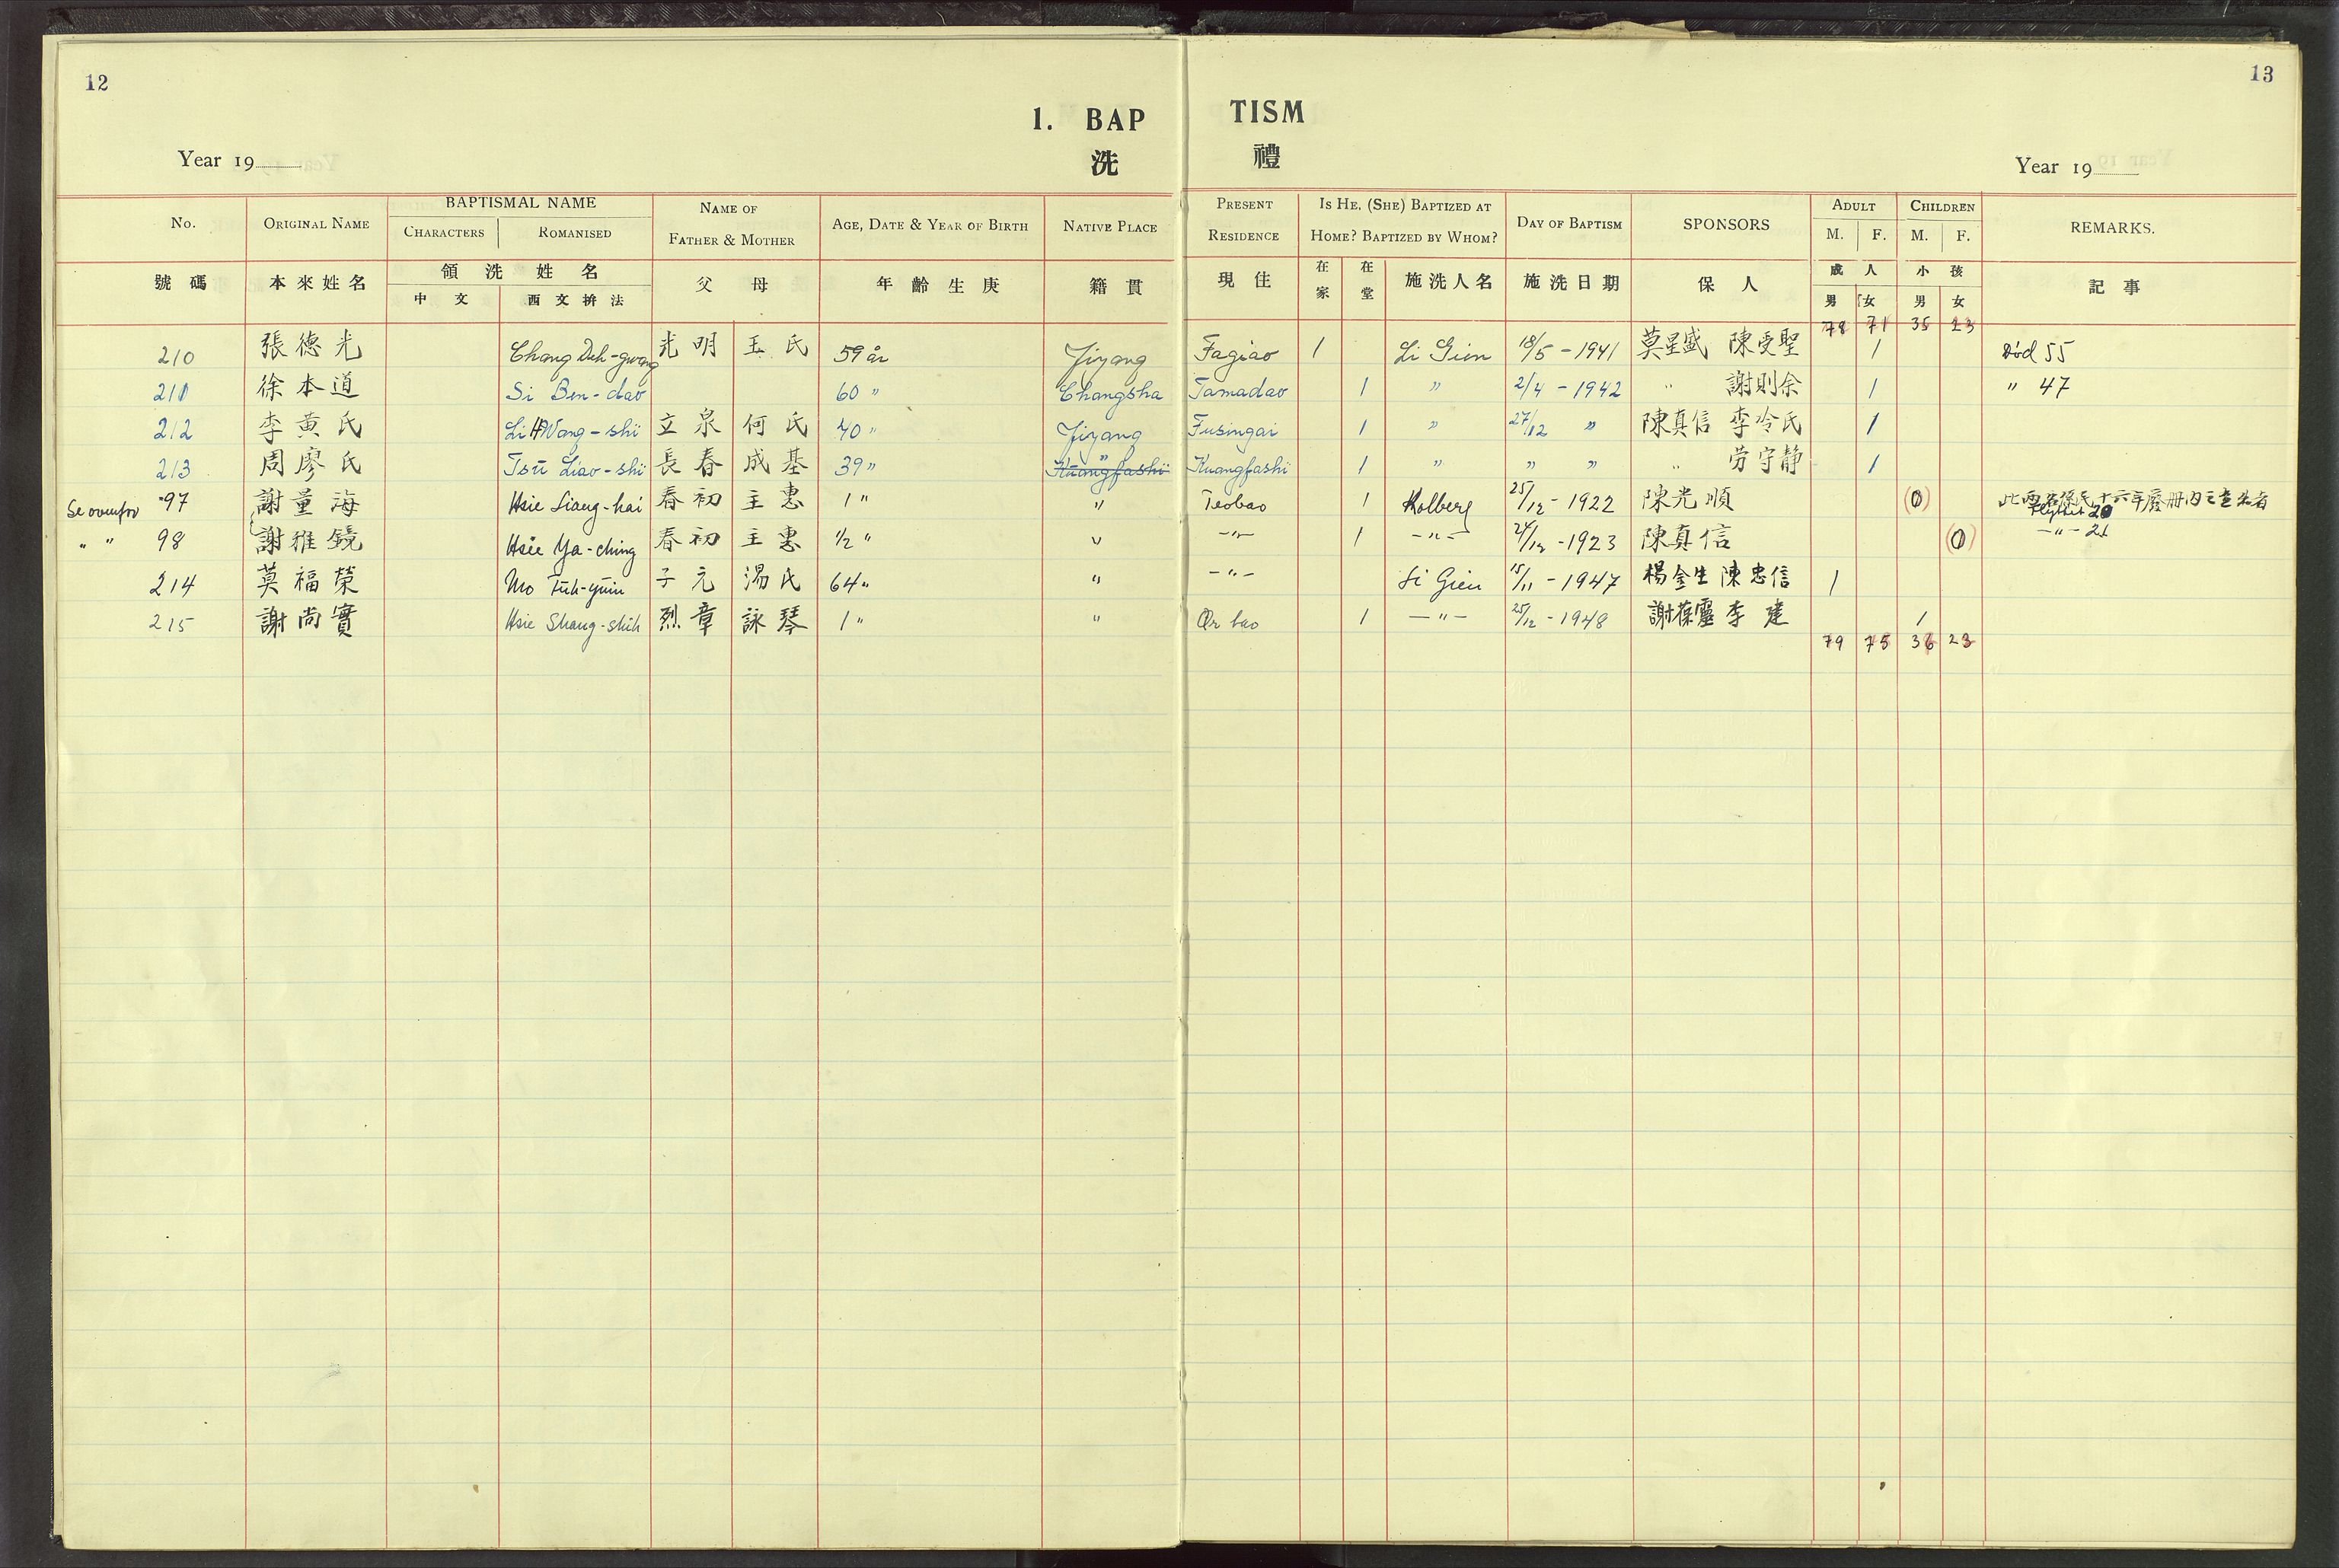 12
13
1. BAP TISM
洗 禮
Year 19
Year 19
No. ORIGINAL NAME BAPTISMAL NAME CHARACTERS ROMANISED NAME OF FATHER & MOTHER AGE, DATE & YEAR OF BIRTH NATIVE PLACE PRESENT RESIDENCE IS HE, (SHE) BAPTIZED AT HOME? BAPTIZED BY WHOM? DAY OF BAPTISM SPONSORS ADULT M. F. CHILDREN M. F. REMARKS.
號碼 本來姓名 領洗姓名 中文 西文拚法 父母 年齡生庚 籍貫 現住 在家 在堂 施洗人名 施洗日期 保人 成人 男 女 小孩 男 女 記事
78 71 35 23
210 張德光 Chang Deh-gwang 光明 王氏 59 år Jiyang Fagiao 1 Li Gien 18/5-1941 莫星盛 陳受聖 1 Död 55
211 徐本道 Si Ben-dao 60 " Changsha Tamadao 1 " 2/4-1942 " 謝則余 1 " 47
212 李黃氏 Li Hwang-shi 立泉 何氏 40 " Jiyang Fusingai 1 " 27/12 " 陳真信 李冷氏 1
213 周廖氏 Tsu Liao-shi 長春 成基 39 " " Kuangfashi Kuangfashi 1 " " " " 劳守静 1
Se ovenfor 97 謝量海 Hsie Liang-hai 春初 主惠 1 " " Teobao 1 Kolberg 25/12-1922 陳光順 (0) 十六年廢冊內
" " 98 謝雅鏡 Hsie Ya-ching 春初 主惠 1/2 " " -"- 1 -"- 24/12-1923 陳真信 (0) -"- 21
214 莫福榮 Mo Fuh-yüin 子元 湯氏 64 " " -"- Li Gien 15/11-1947 楊金生 陳忠信 1
215 謝尚實 Hsie Shang-shih 烈章 詠琴 1 " " Or bao 1 -"- 25/12-1948 謝葆靈 李建 1
79 75 36 23